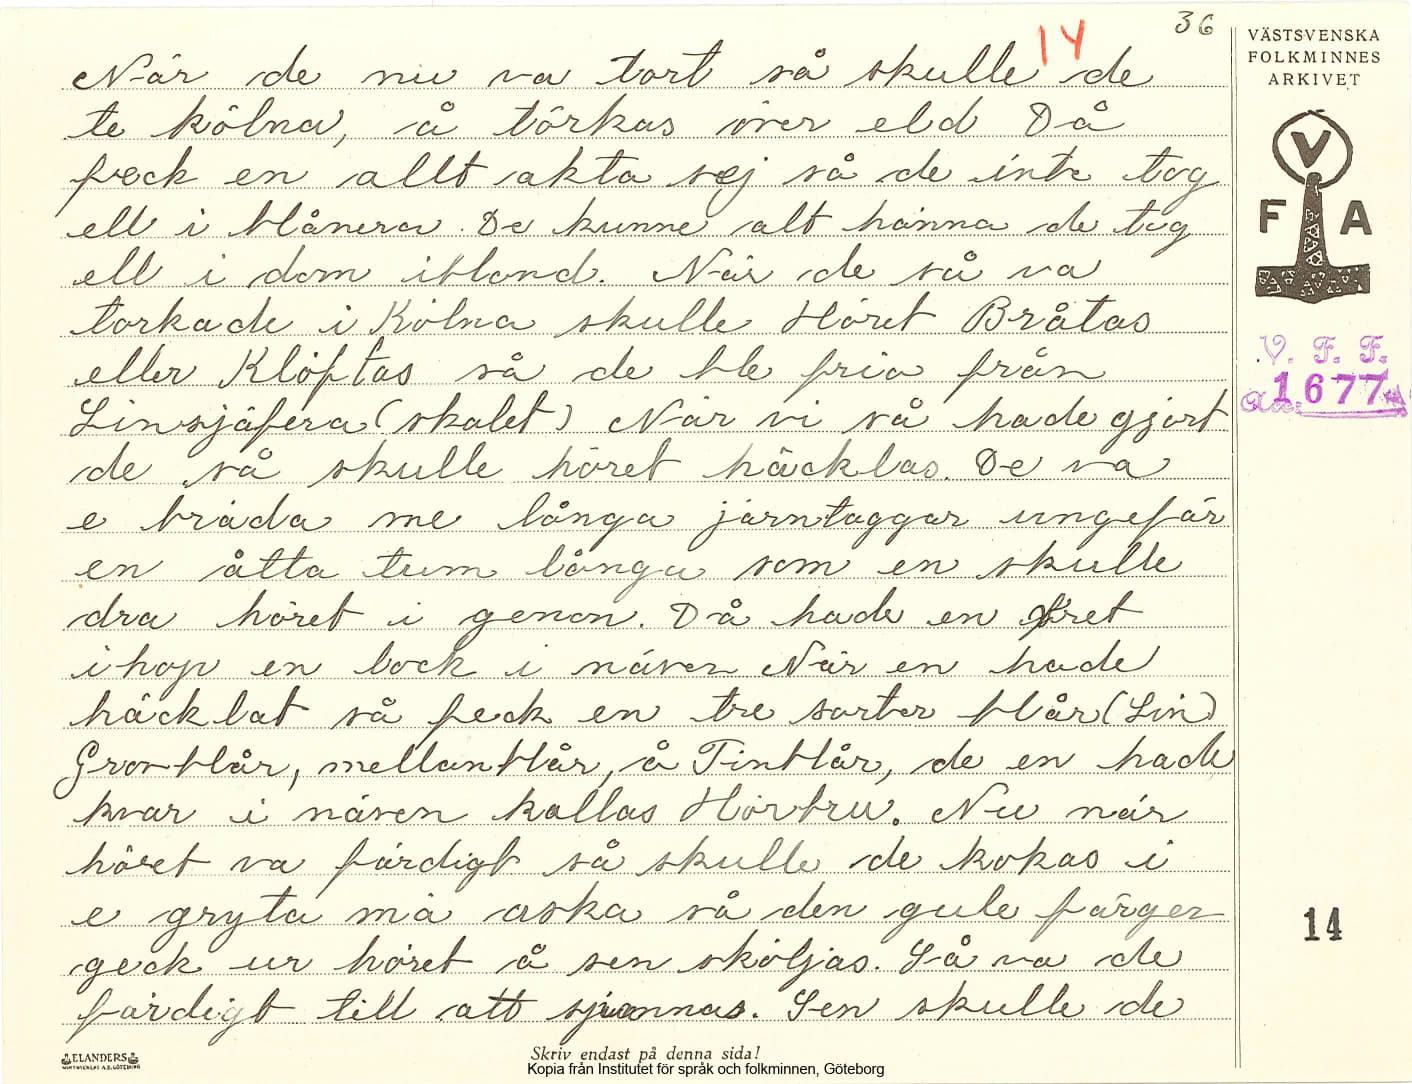 36
14
VÄSTSVENSKA
FOLKMINNES
ARKIVET
V
F A
V. F. F.
1677
När de nu va tort så skulle de
te kölna, å törkas över eld Då
feck en allt akta sej så de inte tog
ell i blånera. De kunne alt hänna de tog
ell i dom ibland. När de så va
torkade i Kölna skulle Höret Bråtas
eller Klöftas så de ble fria från
Linsjäfera (skalet) När vi så hade gjort
de så skulle höret häcklas. De va
e bräda me långa järntaggar ungefär
en åtta tum långa som en skulle
dra höret i genon. Då hade en öret
ihop en lock i näven När en hade
häcklat så feck en tre sorter blår (Lin)
Grovblår, mellanblår, å Finblår, de en hade
kvar i näven kallas Hörbru. Nu när
höret va färdigt så skulle de kokas i
e gryta mä aska så den gule färgen
geck ur höret å sen sköljas. Så va de
färdigt till att sjunnas. Sen skulle de
14
ELANDERS
Skriv endast på denna sida!
Kopia från Institutet för språk och folkminnen, Göteborg